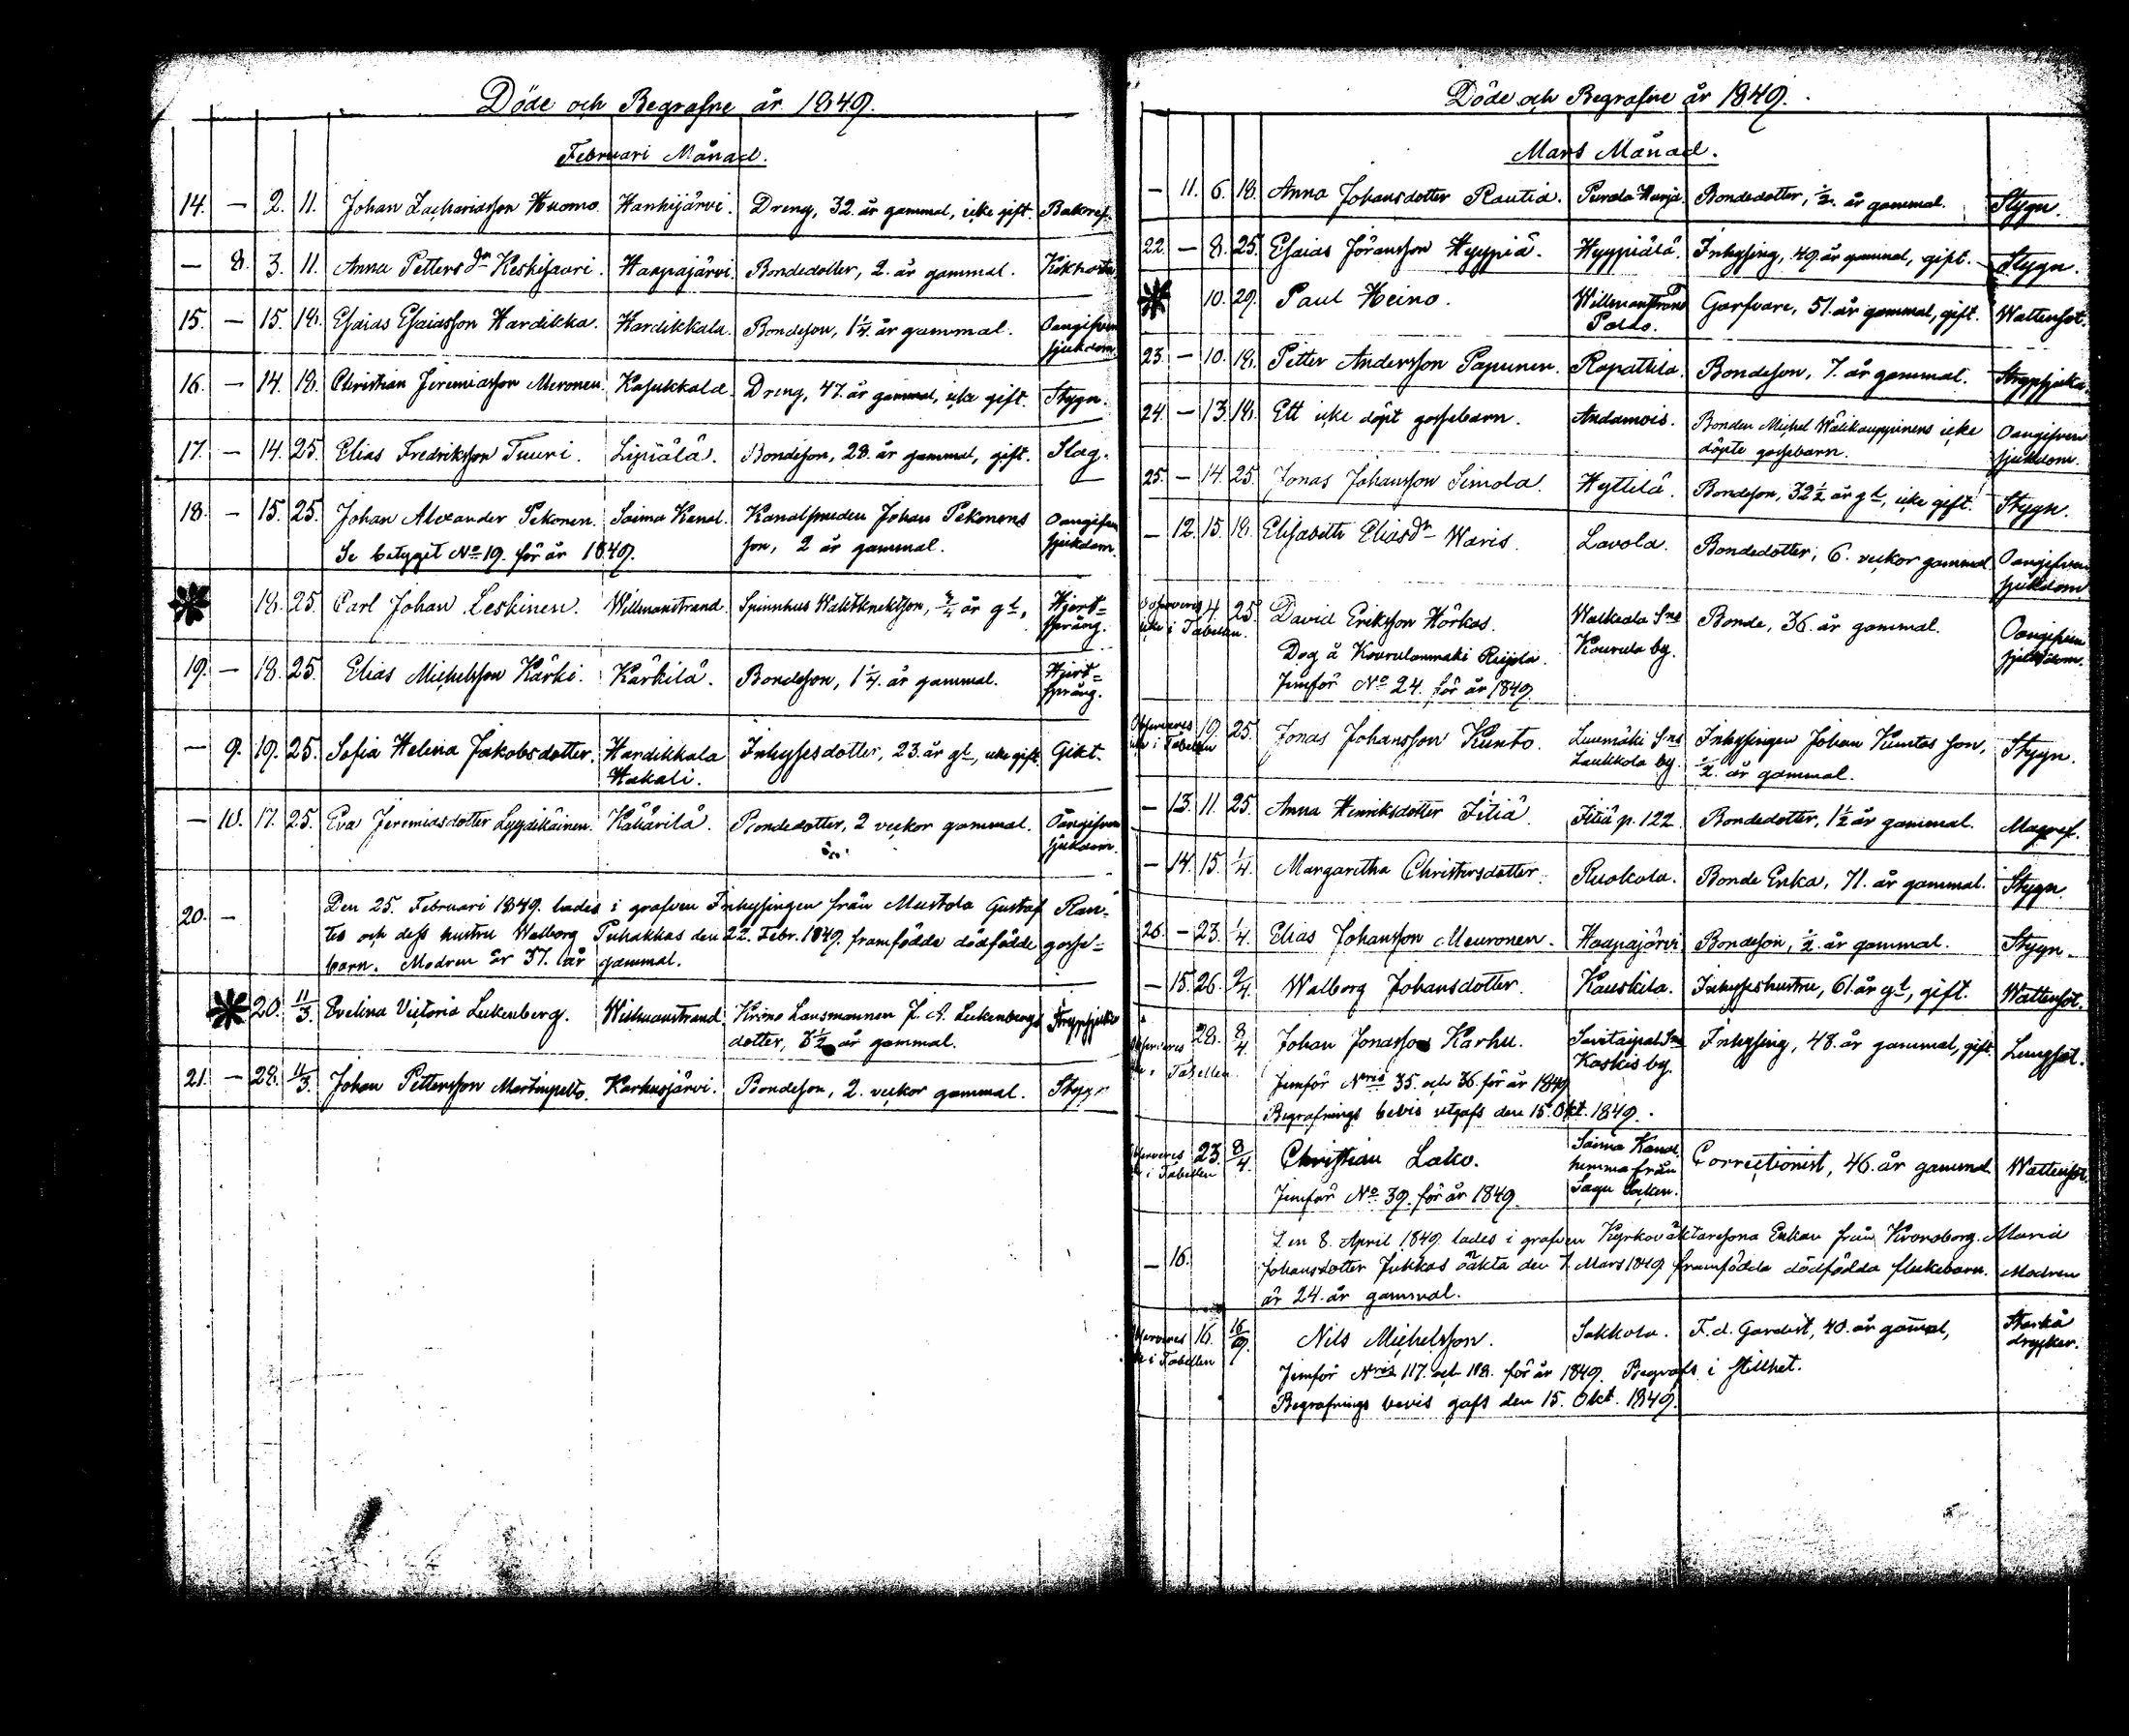 Döde och Begrafne år 1849.
Februari Månad.
14. — 2. 11. Johan Zachariasson Huomo. Hanhijärvi. Dreng, 32. år gammal, icke gift.
— 8. 3. 11. Anna Petters dr Keskisaari. Haapajärvi. Bondedotter, 2. år gammal. Kikhosta
15. — 15. 18. Esaias Esaiasson Hardikka. Hardikkala. Bondeson, 1 1/4. år gammal. Oangifven
sjukdom
16. — 14. 18. Christian Jeremiasson Meronen. Kasukkala. Dreng, 47. år gammal, icke gift. Stygn.
17. — 14. 25. Elias Fredriksson Tuuri. Lipiälä. Bondeson, 28. år gammal, gift. Slag.
18. — 15. 25. Johan Alexander Pekonen. Saima Kanal. Kanalsmeden Johan Pekonens Oangifven
Se betyget No 19. för år 1849. son, 2 år gammal. sjukdom.
18. 25. Carl Johan Leskinen. Willmanstrand. Spinnhus Waktknektson, 3/4 år gl, Hjert=
språng.
19. — 18. 25. Elias Michelsson Kärki. Kärkilä. Bondeson, 1 1/4. år gammal. Hjert=
språng.
— 9. 19. 25. Sofia Helena Jakobsdotter. Hardikkala Inhysesdotter, 23. år gl, icke gift. Gikt.
Hakali.
— 10. 17. 25. Eva Jeremiasdotter Lyydikäinen. Kähärilä. Bondedotter, 2 veckor gammal. Oangifven
sjukdom.
20. — Den 25. Februari 1849. lades i grafven Inhysingen från Mustola Gustaf Ran=
tes och dess hustru Walborg Puhakkas den 22. Febr. 1849. framfödde dödfödde gosse=
barn. Modren är 37. år gammal.
20. 11/3. Evelina Victoria Lukenberg. Willmanstrand. Krono Länsmannen J. A. Lukenbergs Strypsjuka
dotter, 3 1/2 år gammal.
21. — 28. 11/3. Johan Pettersson Martinpelto. Karhusjärvi. Bondeson, 2. veckor gammal. Stygn
Döde och Begrafne år 1849.
Mars Månad.
— 11. 6. 18. Anna Johansdotter Rautia. Bondedotter, 1/2. år gammal. Stygn.
22. — 8. 25. Esaias Jöransson Hyypiä. Hyypiälä. Inhysing, 49. år gammal, gift. Stygn.
10. 29. Paul Heino. Willmanstrand Garfvare, 51. år gammal, gift. Wattensot.
23. — 10. 18. Petter Andersson Papunen. Rapattila. Bondeson, 7. år gammal. Strypsjuka.
24. — 13. 18. Ett icke döpt gossebarn. Andamois. Bonden Michel Wälikauppinens icke Oangifven
döpte gossebarn. sjukdom.
25. — 14. 25. Jonas Johansson Simola. Hyttilä. Bondeson, 32 1/2 år gl, icke gift. Stygn.
— 12. 15. 18. Elisabeth Elias dr Waris. Lavola. Bondedotter, 6. veckor gammal Oangifven
sjukdom
Observeras 4. 25. David Eriksson Hörkas. Walkeala Sns Bonde, 36. år gammal. Oangifven
icke i Tabellen. Dog å Kourulanmäki Rüjola. Kourula by. sjukdom.
Jemför No 24. för år 1849.
Observeras 19. 25. Jonas Johansson Kunto. Luumäki Sns Inhysingen Johan Kuntos son, Stygn.
icke i Tabellen Laukkola by. 1/2. år gammal.
— 13. 11. 25. Anna Henriksdotter Iitiä. Iitiä p. 122. Bondedotter, 1 1/2 år gammal. Magref.
— 14. 15. 1/4. Margaretha Christersdotter. Ruokola. Bonde Enka, 71. år gammal. Stygn.
26. — 23. 1/4. Elias Johansson Meuronen. Haapajärvi Bondeson, 1/2. år gammal. Stygn.
— 15. 26. 2/4. Walborg Johansdotter. Kauskila. Inhyseshustru, 61. år gl, gift. Wattensot.
Observeras 28. 8/4. Johan Jonasson Karhu. Savitaipal Sns Inhysing, 48. år gammal, gift. Lungsot.
icke i Tabellen. Jemför Nris 35. och 36. för år 1849 Kaskis by.
Begrafnings bevis utgafs den 15. Okt. 1849.
Observeras 23. 8/4. Christian Lako. Saima Kanal. Correctionist, 46. år gammal Wattensot.
icke i Tabellen hemma från
Jemför No 39. för år 1849. Sagu Socken.
Den 8. April 1849. lades i grafven Kyrkoväktaresona Enkan från Kronoborg. Maria
— 16. Johansdotter Jukkas oäkta den 7. Mars 1849 framfödda dödfödda flickebarn. Modren
är 24. år gammal.
Observeras 16. 16/9. Nils Michelsson. Sakkola. F. d. Gardist, 40. år gamal, Starka
icke i Tabellen drycker.
Jemför Nris 117. och 118. för år 1849. Begrafs i stillhet.
Begrafnings bevis gafs den 15. Okt. 1849.